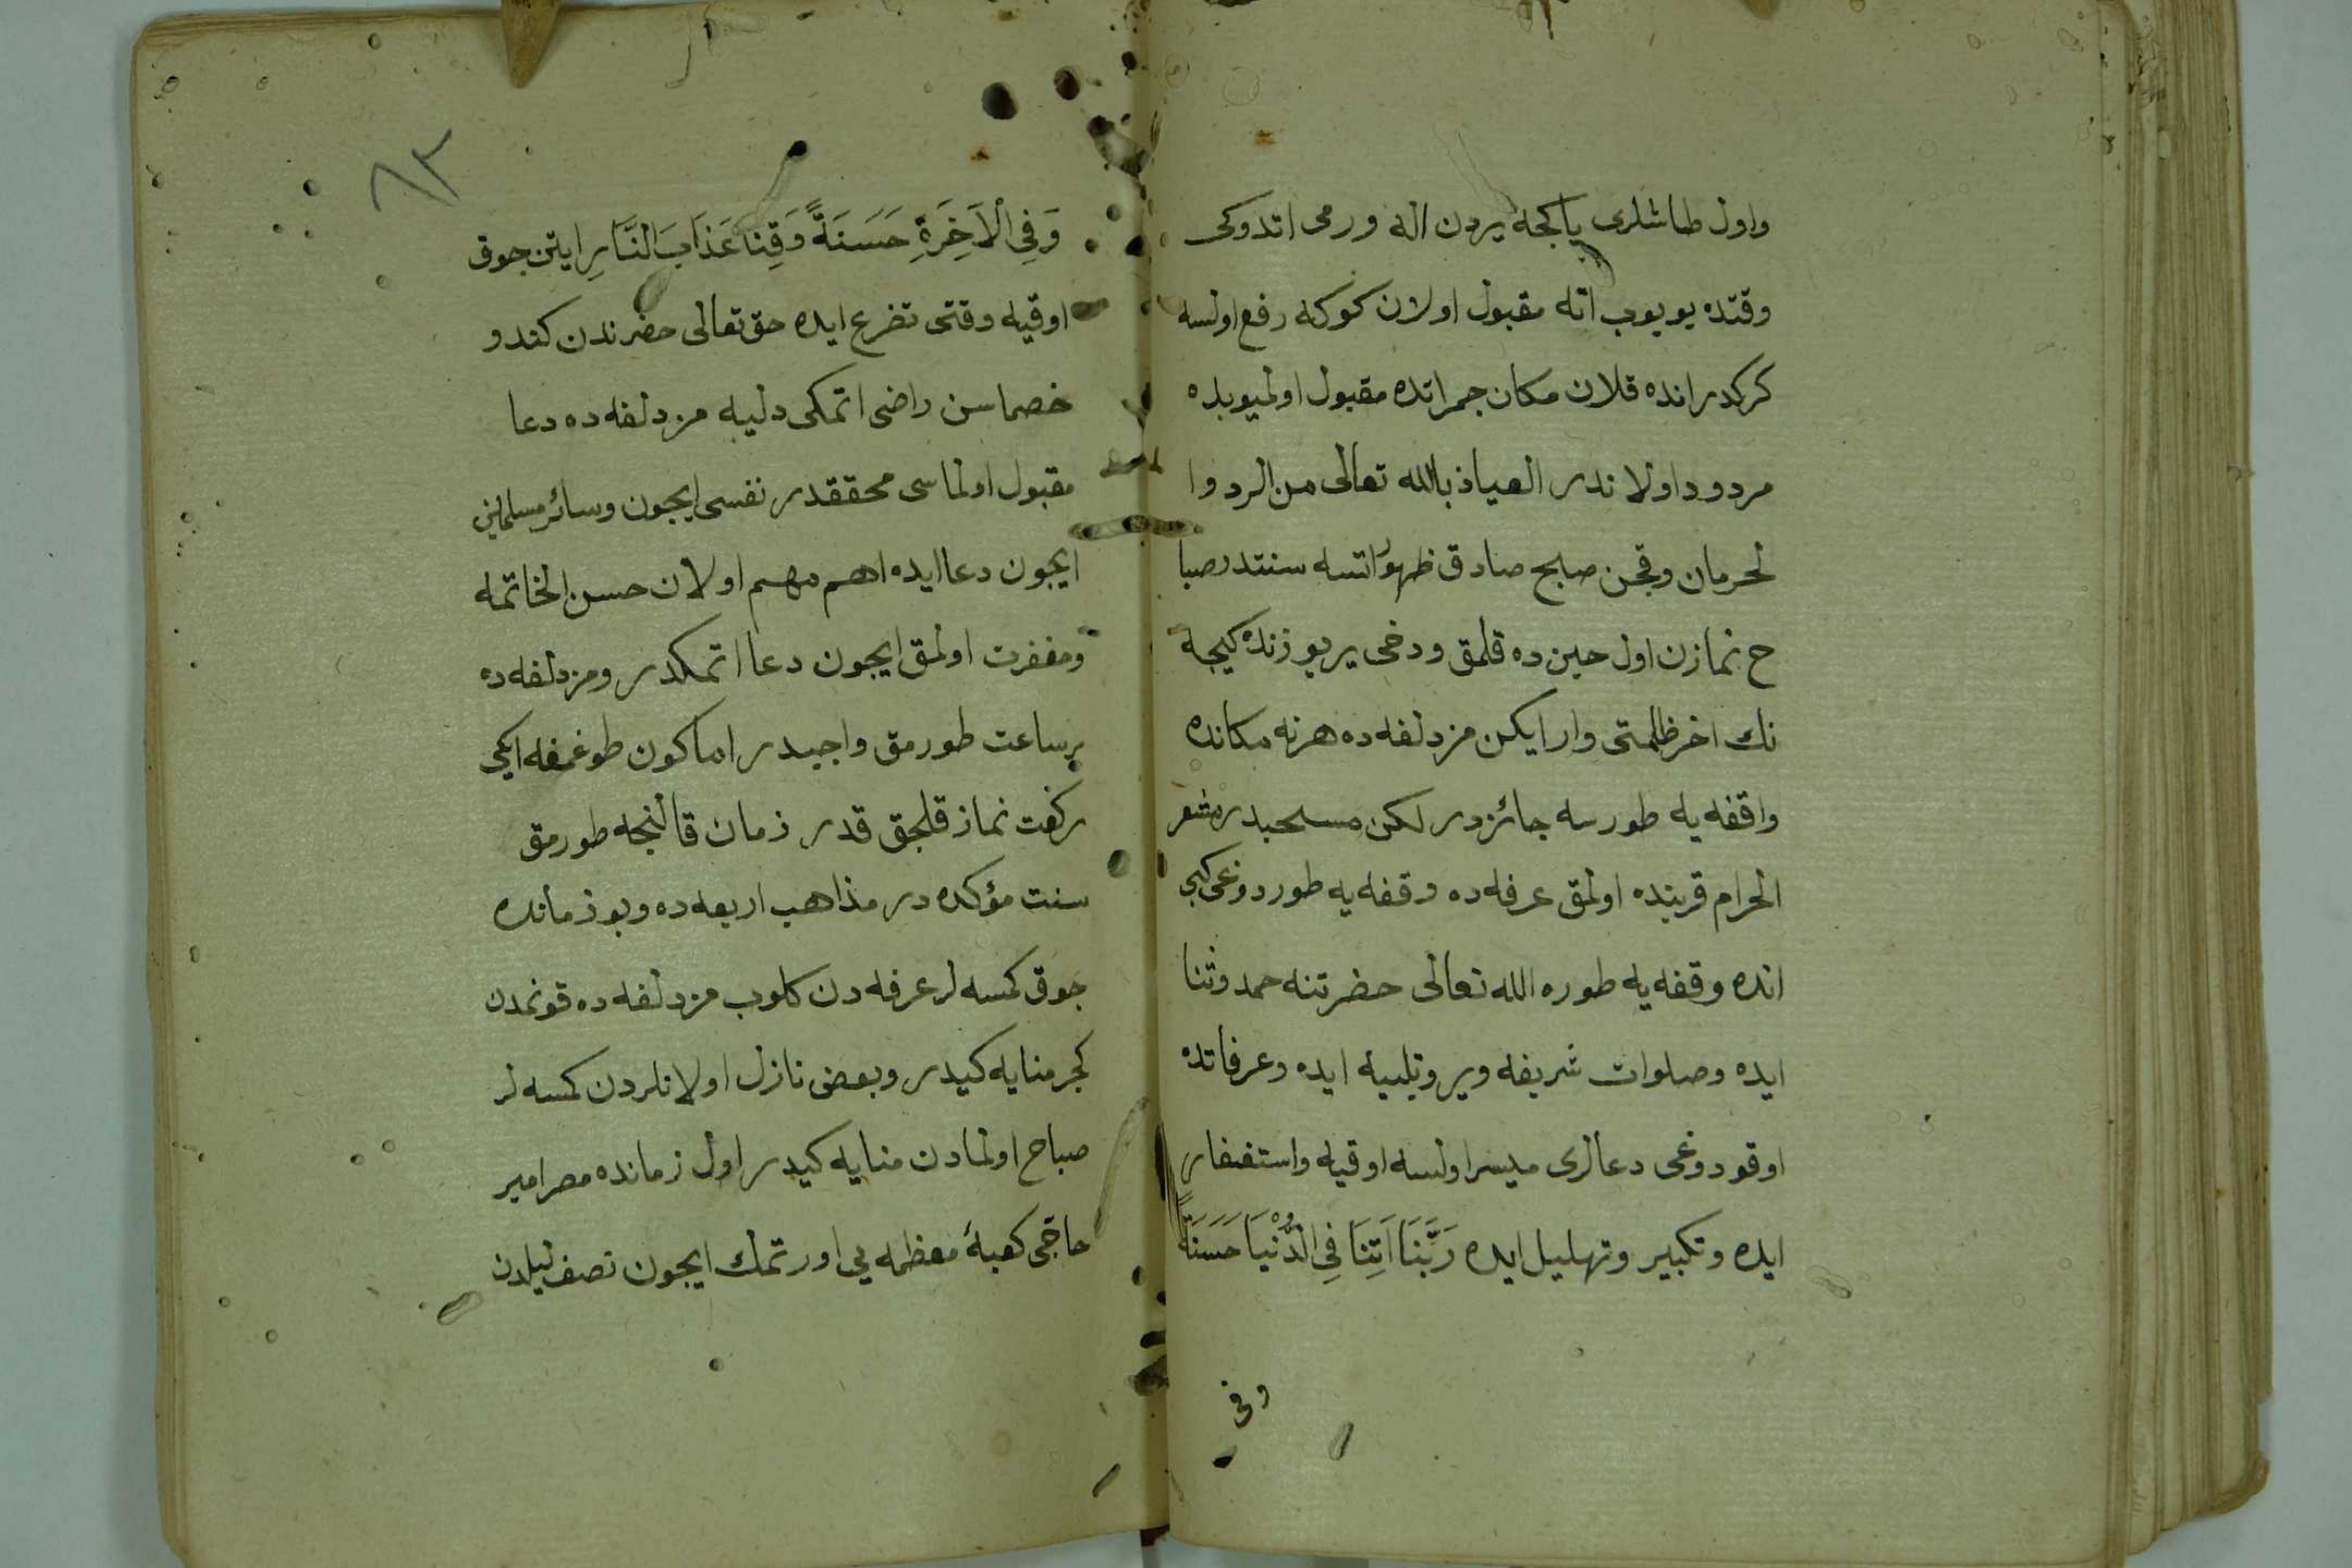 واول طاشلری یا کجه یردن اله ورمی اتدوکی
وقتده یویوب اته مقبول اولان کوکه رفع اولسه
کرکدر انده قلان مکان جمراتده مقبول اولمیوبده
مردود اولاندر العیاذ بالله تعالی من الرد وا
لحرمان وقچن صبح صادق ظهور اتسه سنتدر صبا
ح نمازن اول حین ده قلمق ودخی یر یوزنده کیجه
نك اخر ظلمتی وار ایکن مزدلفه ده هر نه مکانده
واقفه یه طورسه جائزدر لکن مستحبدر مشعر
الحرام قربنده اولمق عرفه ده وقفه یه طوردوغی کبی
انده وقفه یه طوره الله تعالی حضرتنه حمد وثنا
ایده وصلوات شریفه ویر وتلبیه ایده وعرفاتده
اوقودوغی دعالری میسر اولسه اوقیه واستغفار
ایده وتکبیر وتهلیل ایده رَبَّنَا اَتِنَا فِی الدُّنْیَا حَسَنَةً
وفی
٦٣
وَفِی الْاَخِرَةِ حَسَنَةً وَقِنَا عَذَابَ النَّارِ ایتن جوق
اوقیه وقتی تضرع ایده حق تعالی حضرندن کندو
خصماسن راضی اتمکی دلیه مزدلفه ده دعا
مقبول اولماسی محققدر نفسی ایجون وسائر مسلمین
ایجون دعا ایده اهم مهم اولان حسن الخاتمه
ومغفرت اولمق ایجون دعا اتمکدر ومزدلفه ده
بر ساعت طورمق واجبدر اما کون طوغمغه ایکی
رکعت نماز قلجق قدر زمان قالنجه طورمق
سنت مؤکده در مذاهب اربعه ده وبو زمانده
جوق کمسه لر عرفه دن کلوب مزدلفه ده قونمدن
کجر منایه کیدر وبعض نازل اولانلردن کمسه لر
صباح اولمادن منایه کیدر اول زمانده مصر امیر
حاجی کعبۀ معظمه یی اورتمك ایجون نصف لیلدن